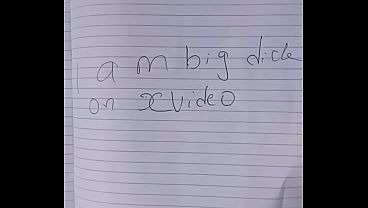 I am big dick
on xvideo